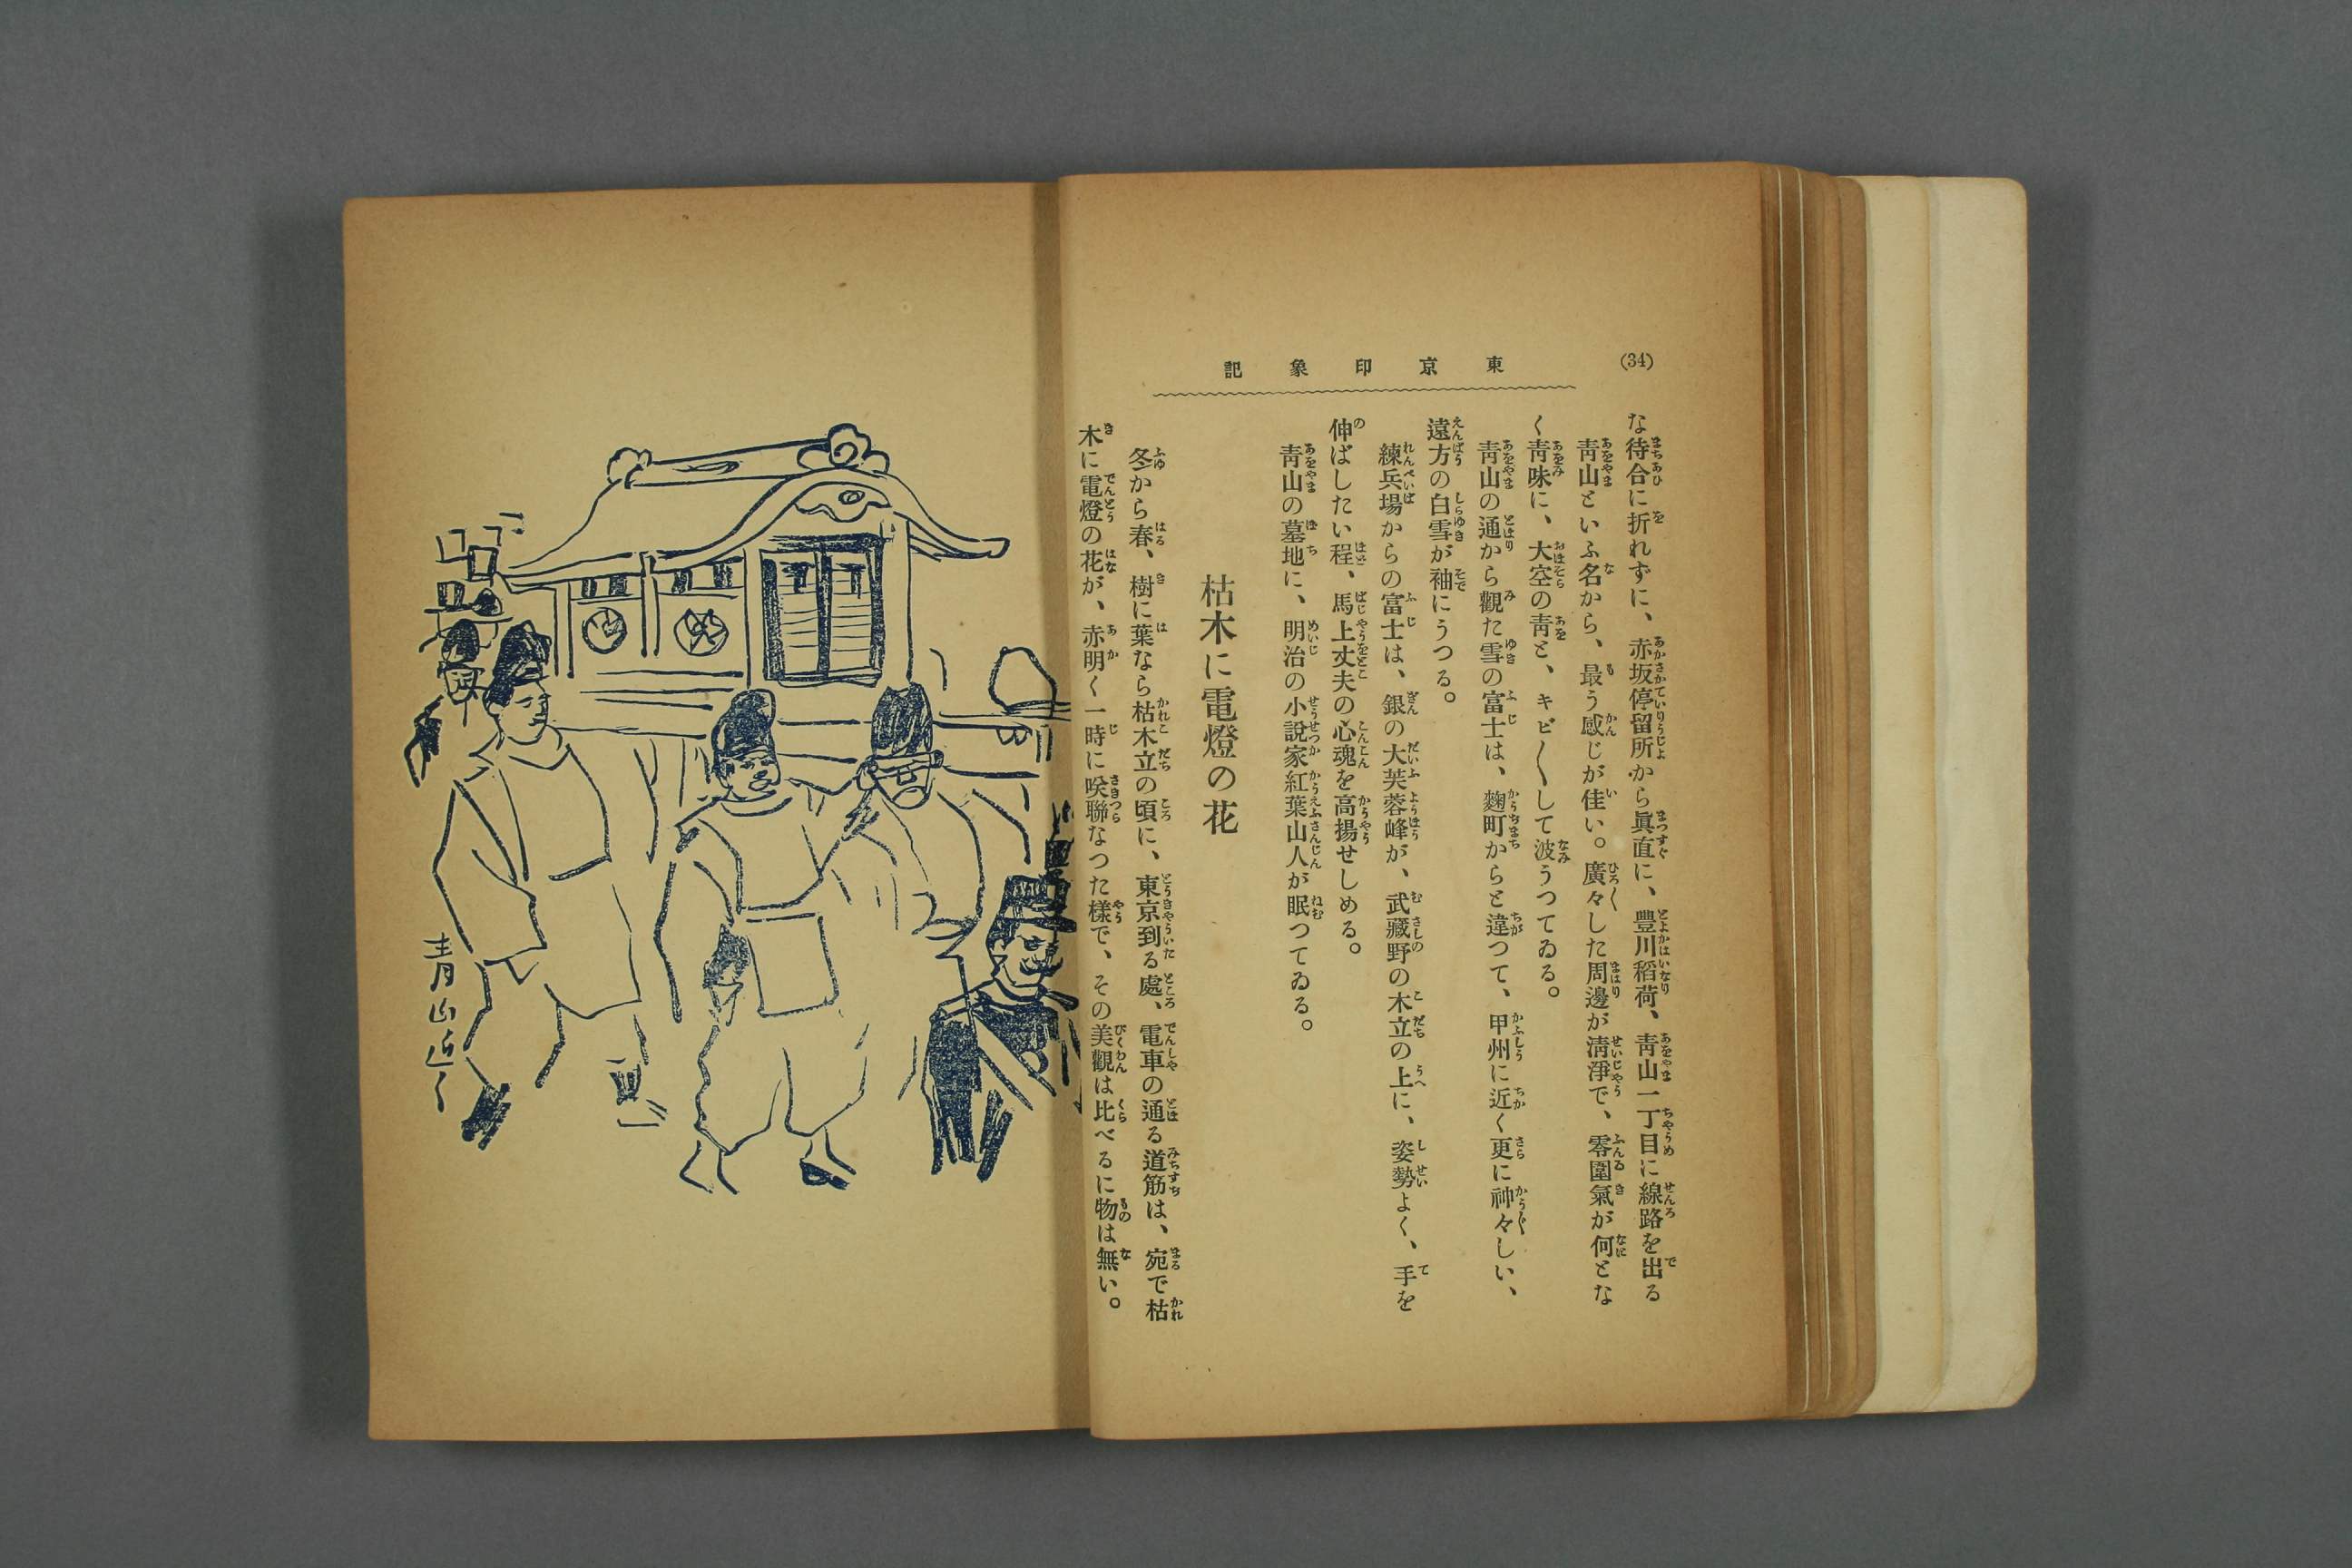 (34)
東京印象記
な待合に折れずに、赤坂停留所から眞直に、豐川稻荷、靑山一丁目に線路を出る
靑山といふ名から、最う感じが佳い。廣々した周邊が淸淨で、雰圍氣が何とな
く靑味に、大空の靑と、キビ〱して波うつてゐる。
靑山の通から觀た雪の富士は、麴町からと違つて、甲州に近く更に神々しい、
遠方の白雪が袖にうつる。
練兵場からの富士は、銀の大芙蓉峰が、武藏野の木立の上に、姿勢よく、手を
伸ばしたい程、馬上丈夫の心魂を高揚せしめる。
靑山の墓地に、明治の小說家紅葉山人が眠つてゐる。
枯木に電燈の花
冬から春、樹に葉なら枯木立の頃に、東京到る處、電車の通る道筋は、宛で枯
木に電燈の花が、赤明く一時に咲聯なつた樣で、その美觀は比べるに物は無い。
青山近く